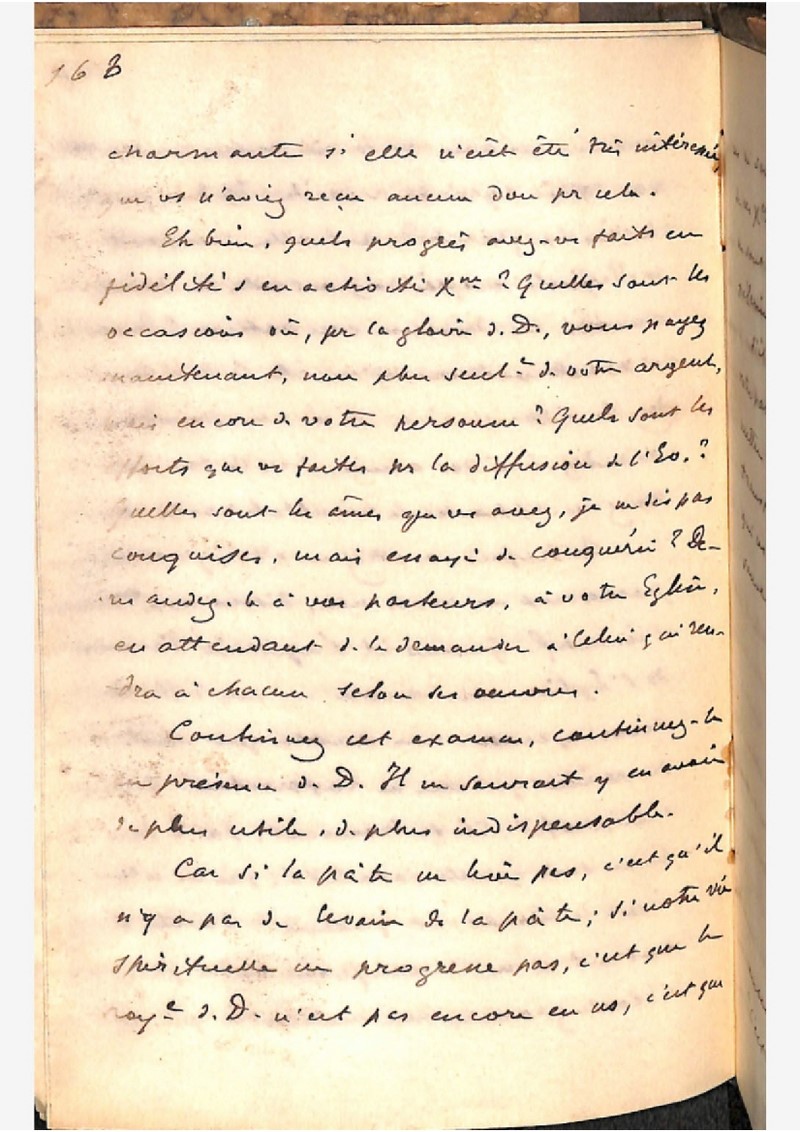 168
charmante si elle n'eût été très intéressée
que vs n'aviez reçu aucun don pr cela.
Eh bien, quels progrès avez-vs faits en
fidélité, en activité Xne ? Quelles sont les
occasions où, pr la gloire d. D., vous payez
maintenant, non plus seult de votre argent,
mais encore de votre personne ? Quels sont les
efforts que vs faites pr la diffusion de l'Ev. ?
Quelles sont les âmes que vs avez, je ne dis pas
conquises, mais essayé de conquérir ? De-
mandez-le à vos pasteurs, à votre Eglise,
en attendant de le demander à Celui qui ren-
dra à chacun selon ses oeuvres.
Continuez cet examen, continuez-le
en présence de D. Il ne saurait y en avoir
de plus utile, de plus indispensable.
Car si la pâte ne lève pas, c'est qu'il
n'y a pas de levain de la pâte ; si notre vie
spirituelle ne progresse pas, c'est que le
roye d. D. n'est pas encore en ns, c'est que